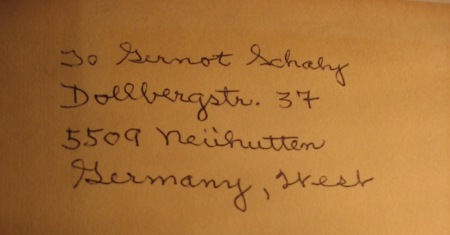 To Gernot Schaly
Dollbergstr. 37
5509 Neühutten
Germany, West